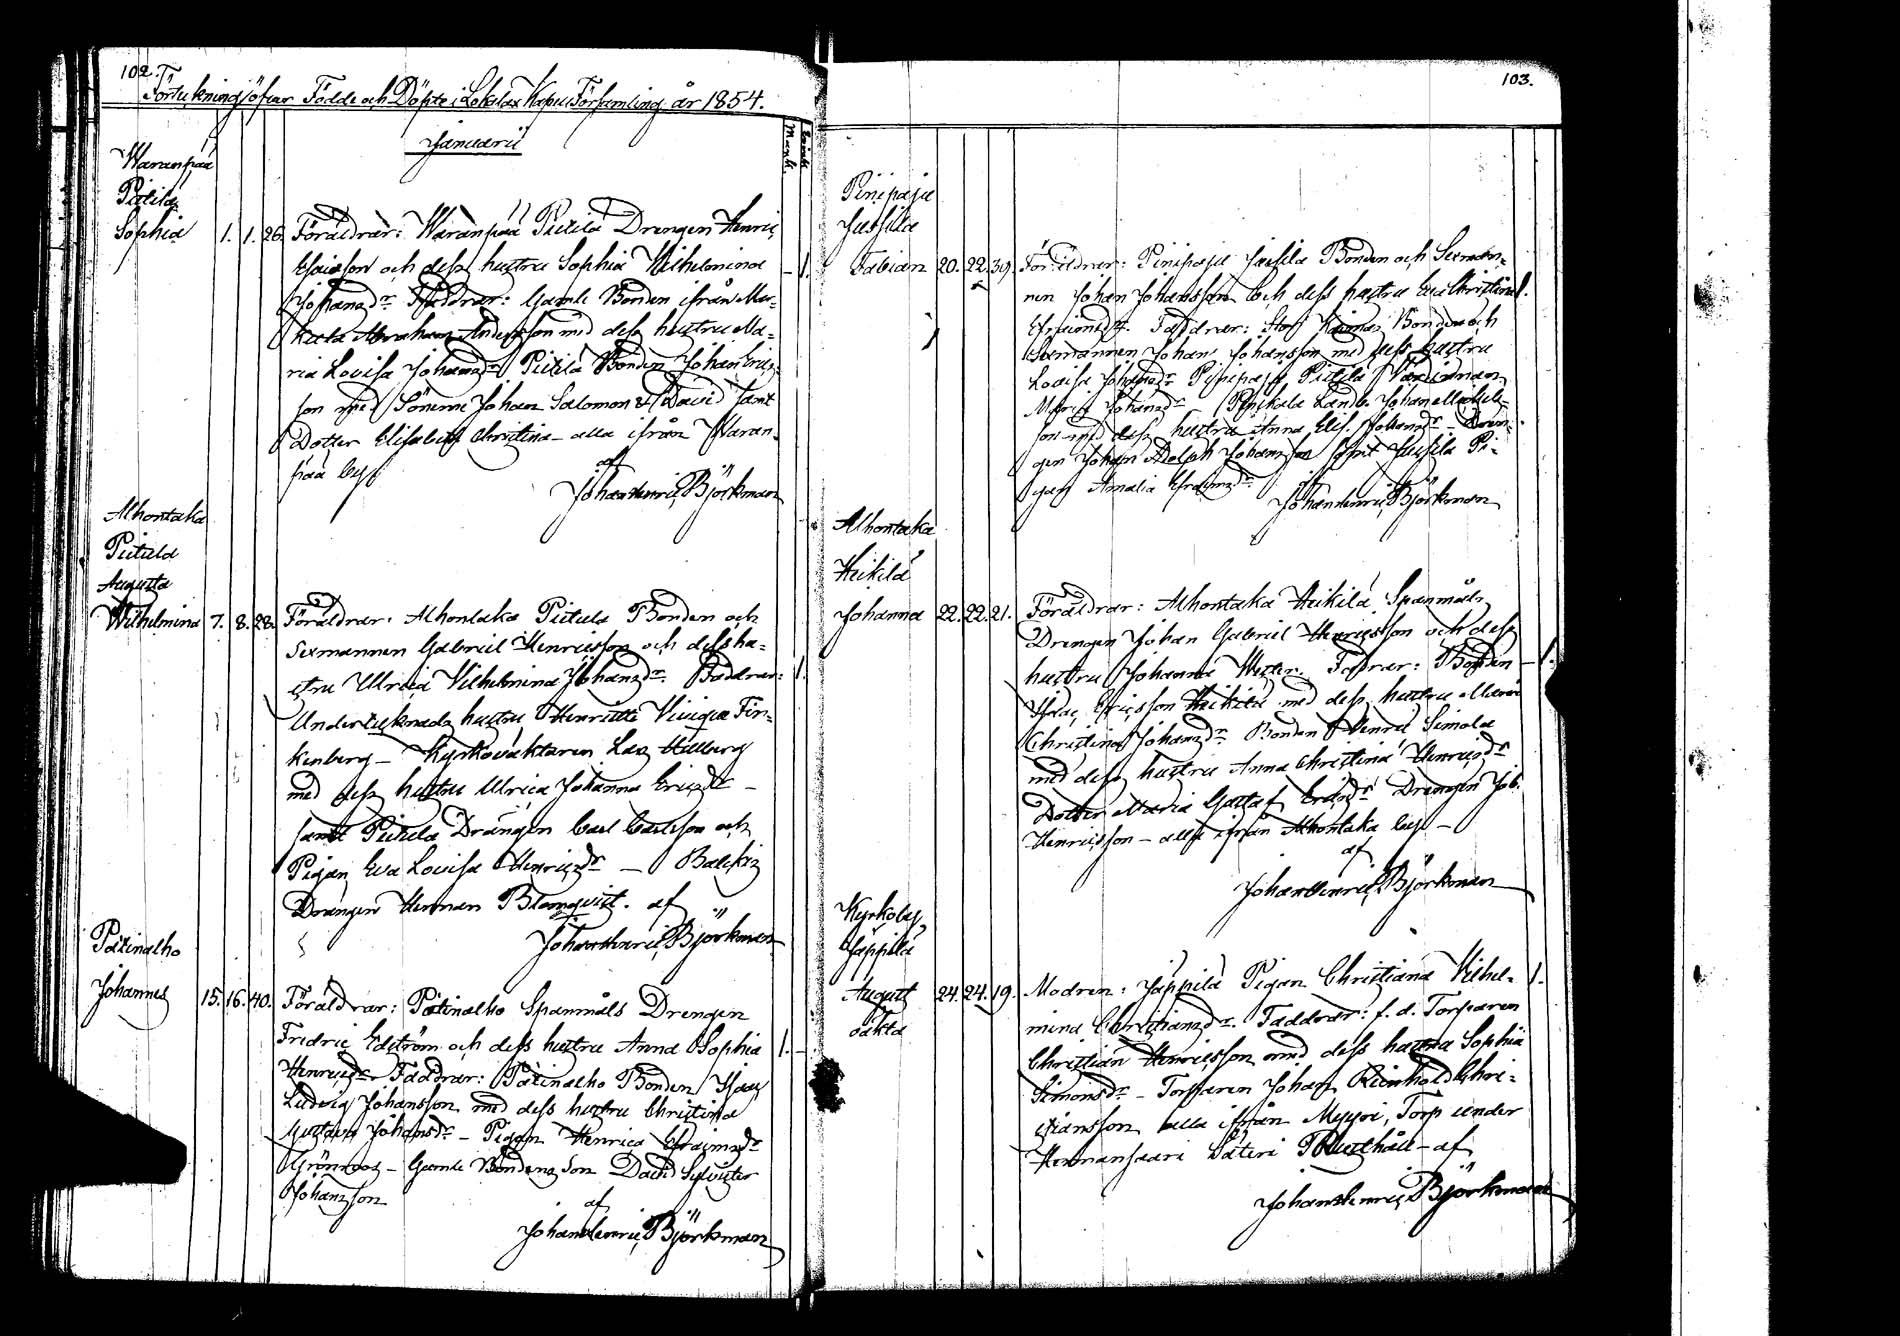 102.
Förteckning öfver Födde och Döpte i Lokalax Kapell Församling år 1854.
Januarii
Mankk. Qvink.
Waranpää
Pietilä
Sophia 1. 1. 26. Föräldrar: Waranpää Pietilä Drengen Henric
Esaiasson och dess hustru Sophia Wilhelmina
Johansdr. Faddrar: Gamle Bonden ifrån
Abraham Andersson med dess hustru Ma-
ria Lovisa Johansdr Pietilä Bonden Johan
son med Sönerne Johan Salomon & David samt
Dotter Elisabeth Christina - alla ifrån Waran-
pää by
af
Johan Henric Björkman
Alhontaka
Pietula
Augusta
Wilhelmina 7. 8. 28. Föräldrar: Alhontaka Pietula Bonden och
Sexmannen Gabriel Henricsson och dess hu-
stru Ulrica Vilhelmina Johansdr. Faddrar: 1.
Undertecknads hustru Henriette Vivique Fir-
kenberg - Kyrkoväktaren Hellberg
med dess hustru Ulrica Johanna Ericsdr -
samt Pietula Drängen Carl Carlsson och
Pigan Eva Lovisa Henricsdr -
Drängen Herman Blomqvist. af
Johan Henric Björkman
Pätinalho
Johannes 15. 16. 40. Föräldrar: Pätinalho Spanmåls Drengen
Fredric Edström och dess hustru Anna Sophia 1.
Henricsdr Faddrar: Pätinalho Bonden Isaac
Ludvig Johansson med dess hustru Christina
Gustava Johansdr - Pigan Henrica Efraimsdr
Grönroos - Gamle Bondens Son David Sylvester
Johansson
af
Johan Henric Björkman
103.
Pinipaju
Jussila
Fabian 20. 22. 39. Föräldrar: Pinipaju Jussila Bonden och Sexman-
nen Johan Johansson och dess hustru Eva Christina 1.
Efraimsdr. Faddrar: Bonden och
Sexmannen Johan Johansson med dess hustru
Lovisa Johansdr Pinipaju Pietilä
Maria Johansdr Johan Michels-
son med dess hustru Anna Elis. Johansdr - Drän-
gen Johan Adolph Johansson samt Jussila Pi-
gan Amalia Efraimsdr
af
Johan Henric Björkman
Alhontaka
Heikilä
Johanna 22. 22. 21. Föräldrar: Alhontaka Heikilä Spanmåls
Drengen Johan Gabriel Henricsson och dess
hustru Johanna Wester. Faddrar: Bonden - 1.
Isaac Ericsson Heikilä med dess hustru Maria
Christina Johansdr. Bonden Henric Simola
med dess hustru Anna Christina Henricsdr
Dotter Maria Gustaf Drengen Joh.
Henricsson - alla ifrån Alhontaka by -
af
Johan Henric Björkman
Kyrkoby
Jäppilä
August 24. 24. 19. Modren: Jäppilä Pigan Christiana Vilhel- 1.
oäkta
mina Christiansdr. Faddrar: f. d. Torparen
Christian Henricsson med dess hustru Sophia
Simonsdr - Torparen Johan Reinhold Chri-
stiansson alla ifrån Myyri, Torp under
Hermansaari Säteri Rusthåll - af
Johan Henric Björkman